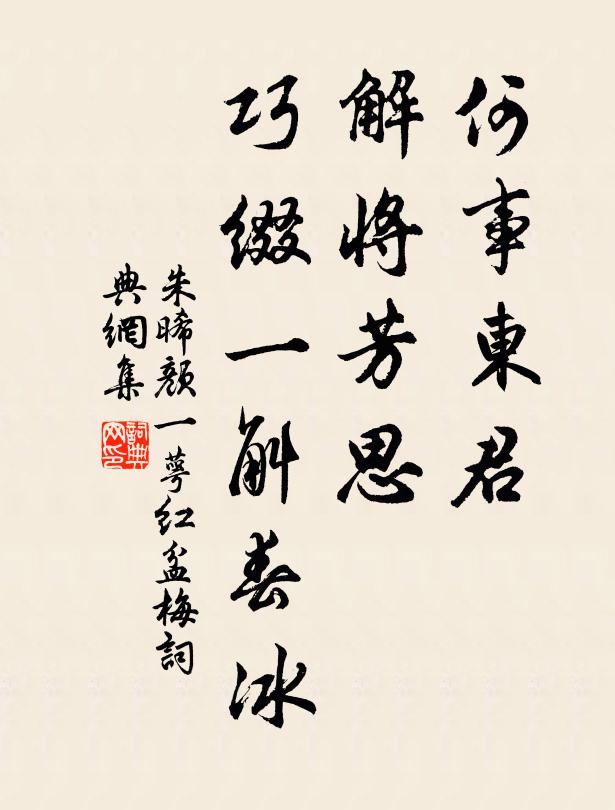 何事東君
解將芳思
巧綴一斛春冰
朱晞顏一萼红盆梅詞
典網集
詞典
网印